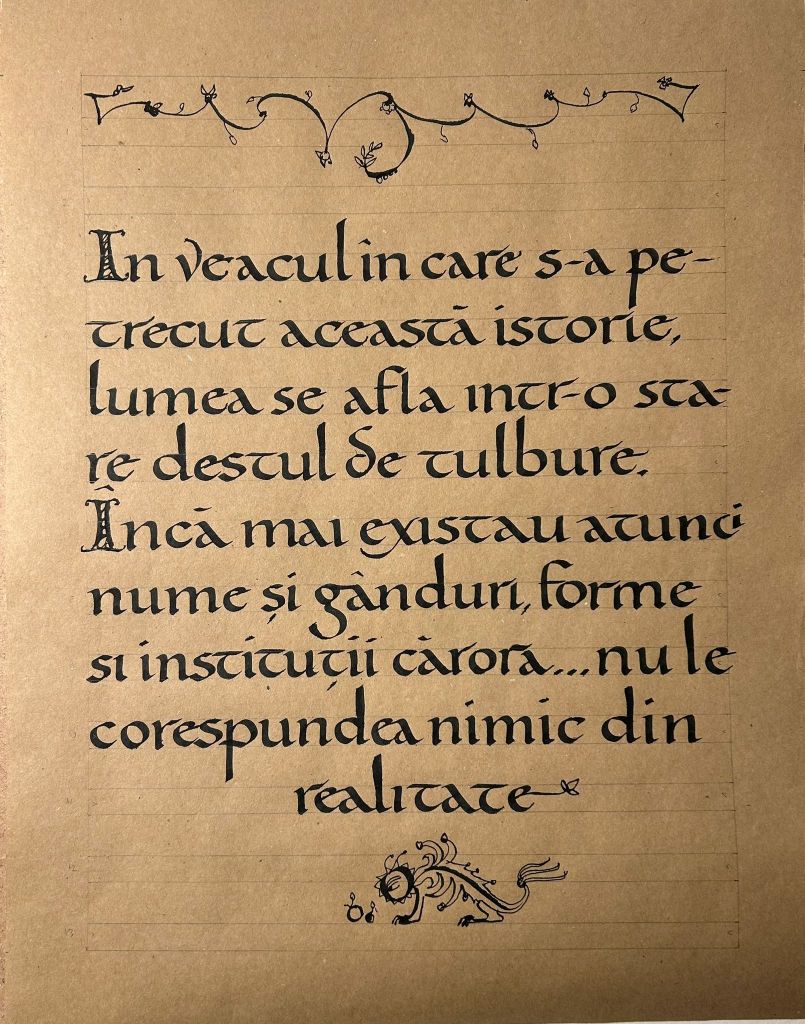 In veacul în care s-a pe-
trecut această istorie,
lumea se afla intr-o sta-
re destul de tulbure.
Încă mai existau atunci
nume și gânduri, forme
si instituții cărora... nu le
corespundea nimic din
realitate